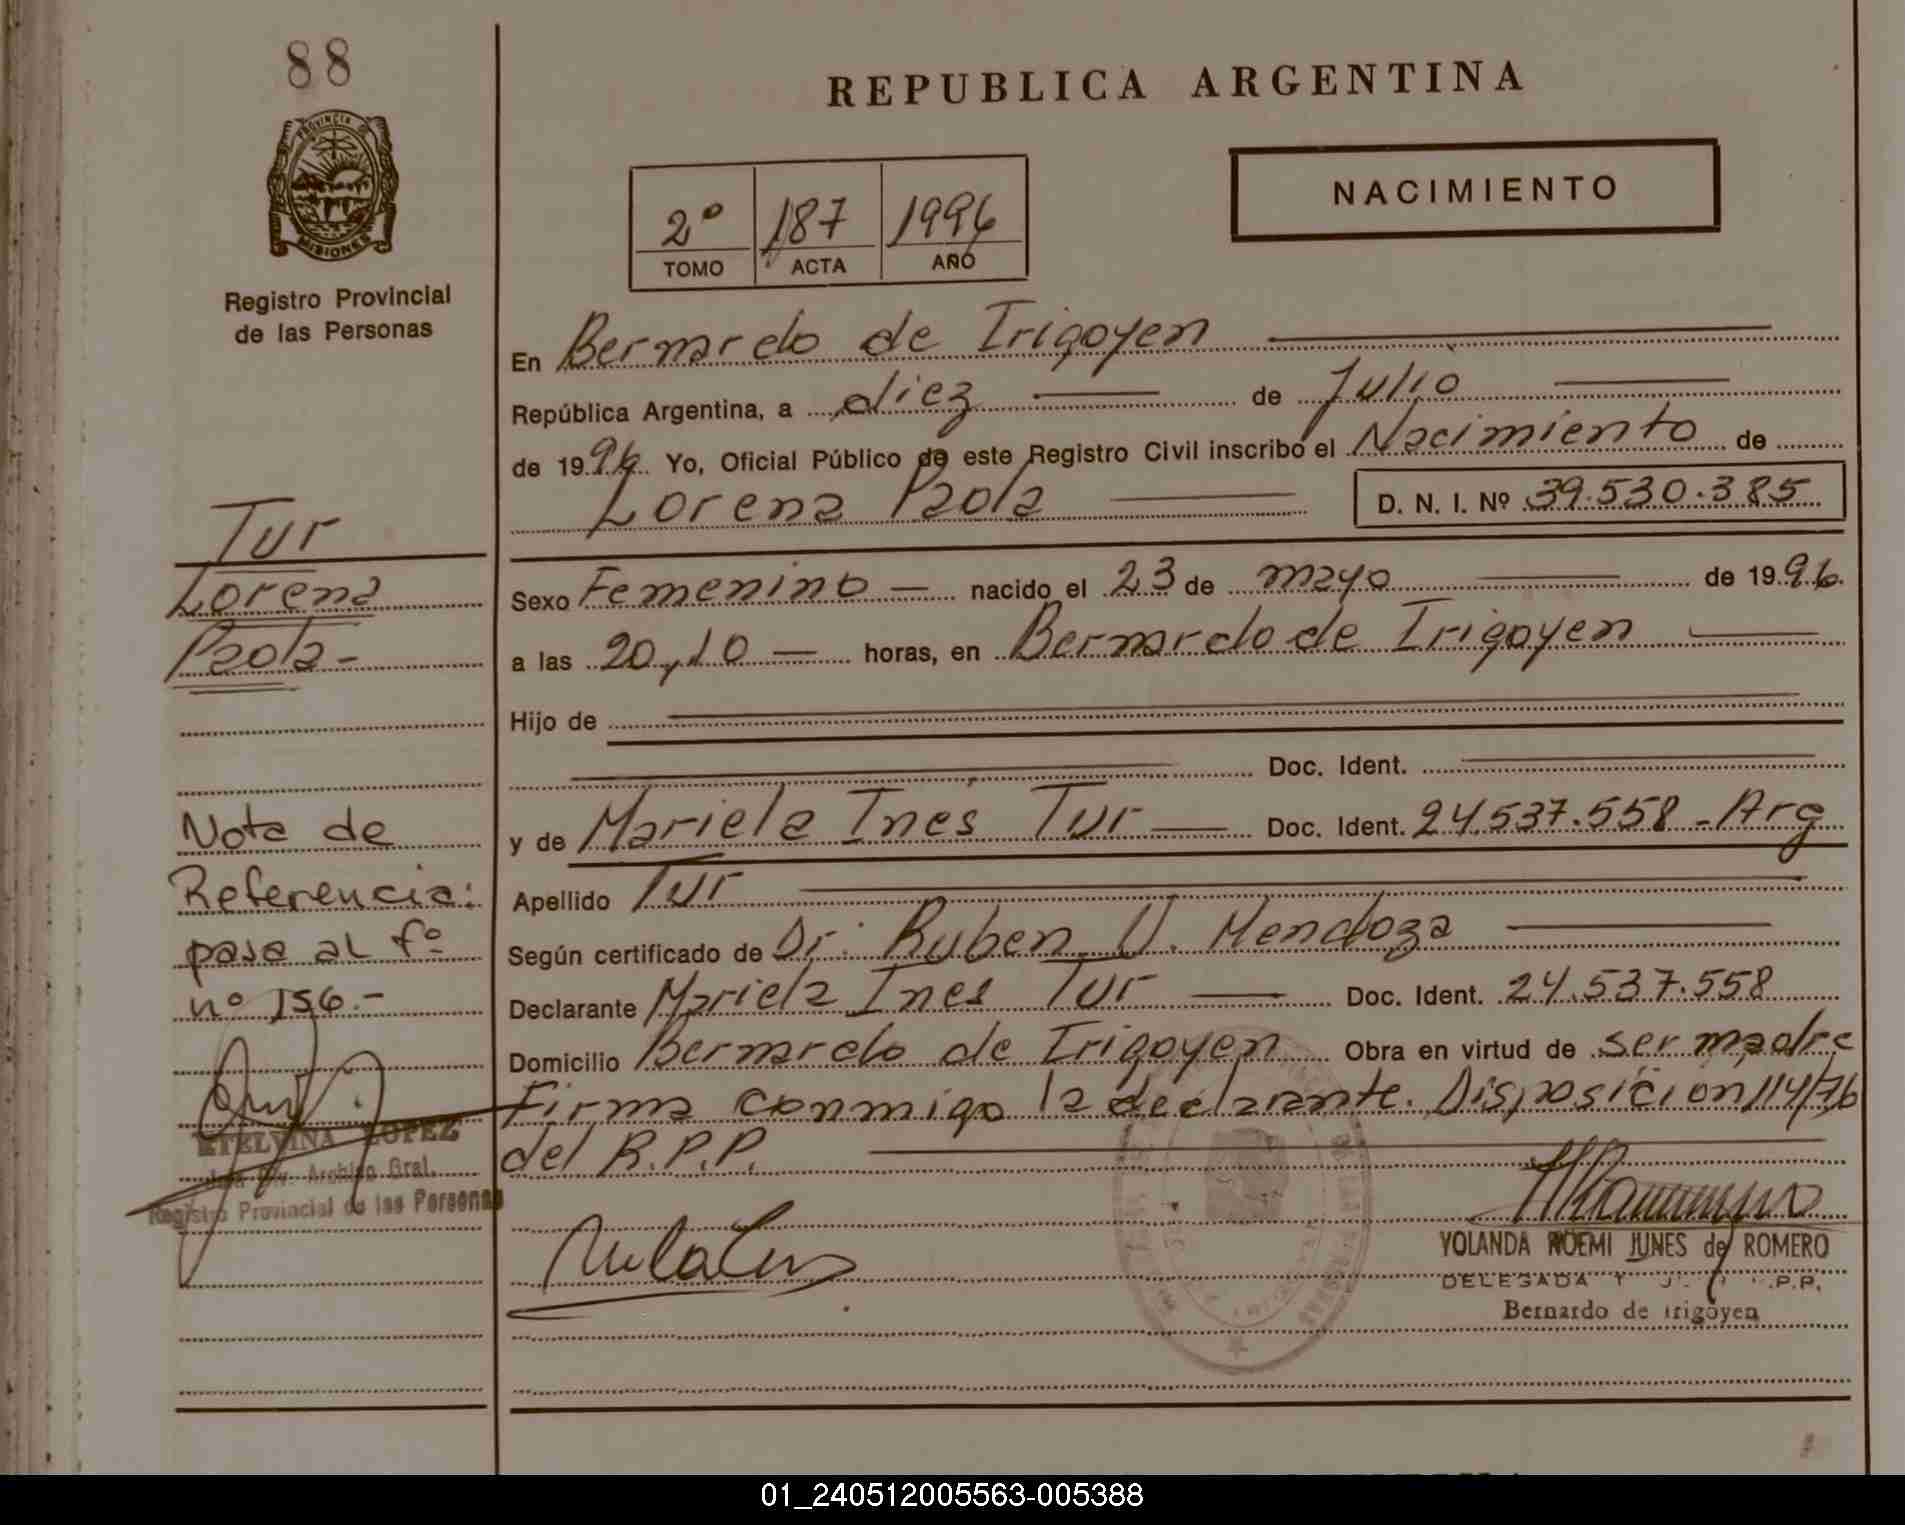 88
PROVINCIA DE
MISIONES
Registro Provincial
de las Personas
REPUBLICA ARGENTINA
2º 187 1996
TOMO ACTA AÑO
NACIMIENTO
En Bernardo de Irigoyen
República Argentina, a diez de Julio
de 1996 Yo, Oficial Público de este Registro Civil inscribo el Nacimiento de
Lorena Paola D. N. I. Nº 39.530.385
Tur
Lorena
Paola-
Sexo Femenino — nacido el 23 de mayo de 1996
a las 20,10 — horas, en Bernardo de Irigoyen
Hijo de
Doc. Ident.
y de Mariela Inés Tur — Doc. Ident. 24.537.558 - Arg
Apellido Tur
Según certificado de Dr. Ruben V. Mendoza
Declarante Mariela Ines Tur — Doc. Ident. 24.537.558
Domicilio Bernardo de Irigoyen Obra en virtud de ser madre
Firma conmigo la declarante. Disposición 114/76
del R.P.P.
Nota de
Referencia:
pasa al fº
nº 156.-
ETELVINA LOPEZ
Jefa Div. Archivo Gral.
Registro Provincial de las Personas
YOLANDA NOEMI JUNES de ROMERO
DELEGADA
Bernardo de Irigoyen
01_240512005563-005388